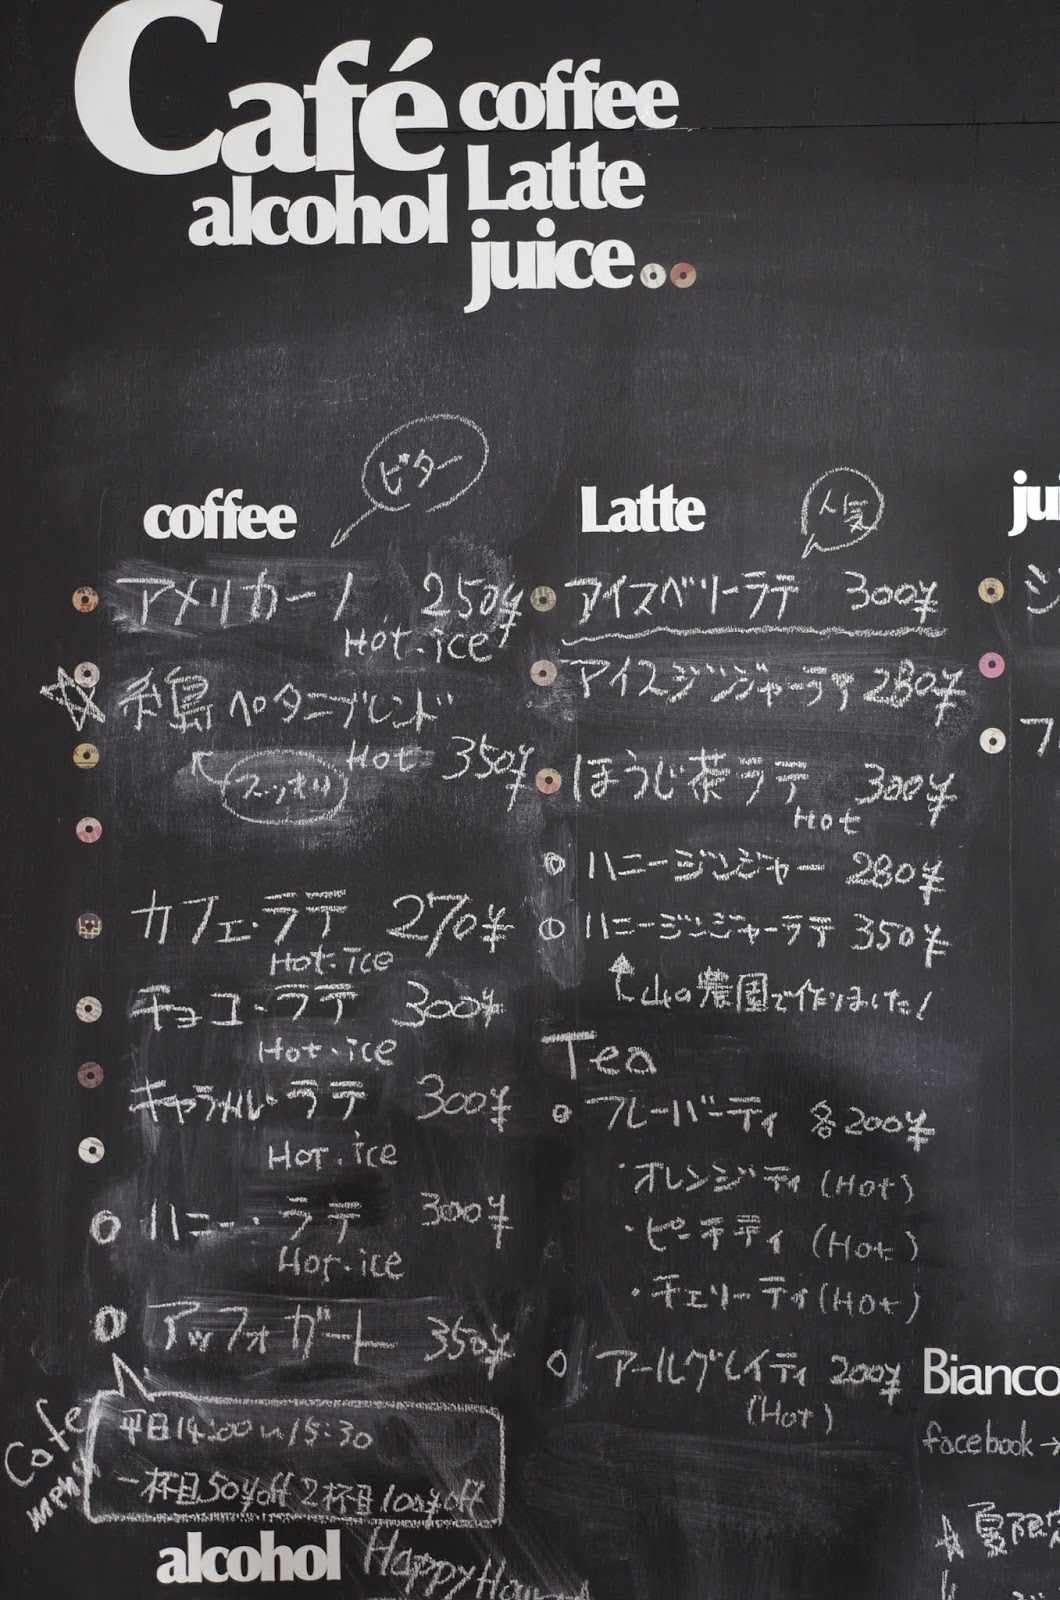 Café
coffee
Latte
alcohol
juice
coffee
ビター
アメリカーノ 250¥
Hot・ice
糸島ペタニブレンド
Hot 350¥
スッキリ
カフェ・ラテ 270¥
Hot・Ice
チョコ・ラテ 300¥
Hot・ice
キャラメル・ラテ 300¥
Hot・ice
ハニー・ラテ 300¥
Hot・ice
アッフォガート 350¥
Cafe
menu
平日14:00〜15:30
一杯目50¥off 2杯目100¥off
alcohol Happy Hour
Latte
人気
アイスベリーラテ 300¥
アイスジンジャーラテ 280¥
ほうじ茶ラテ 300¥
Hot
ハニージンジャー 280¥
ハニージンジャーラテ 350¥
山の農園で作りました!
Tea
フレーバーティ 各200¥
・オレンジティ (Hot)
・ピーチティ (Hot)
・チェリーティ (Hot)
アールグレイティ 200¥
(Hot)
jui
ジ
フ
Bianco
facebook→
夏限定